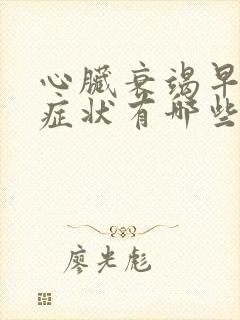 心臟衰竭早
症状有哪些
廖光彪